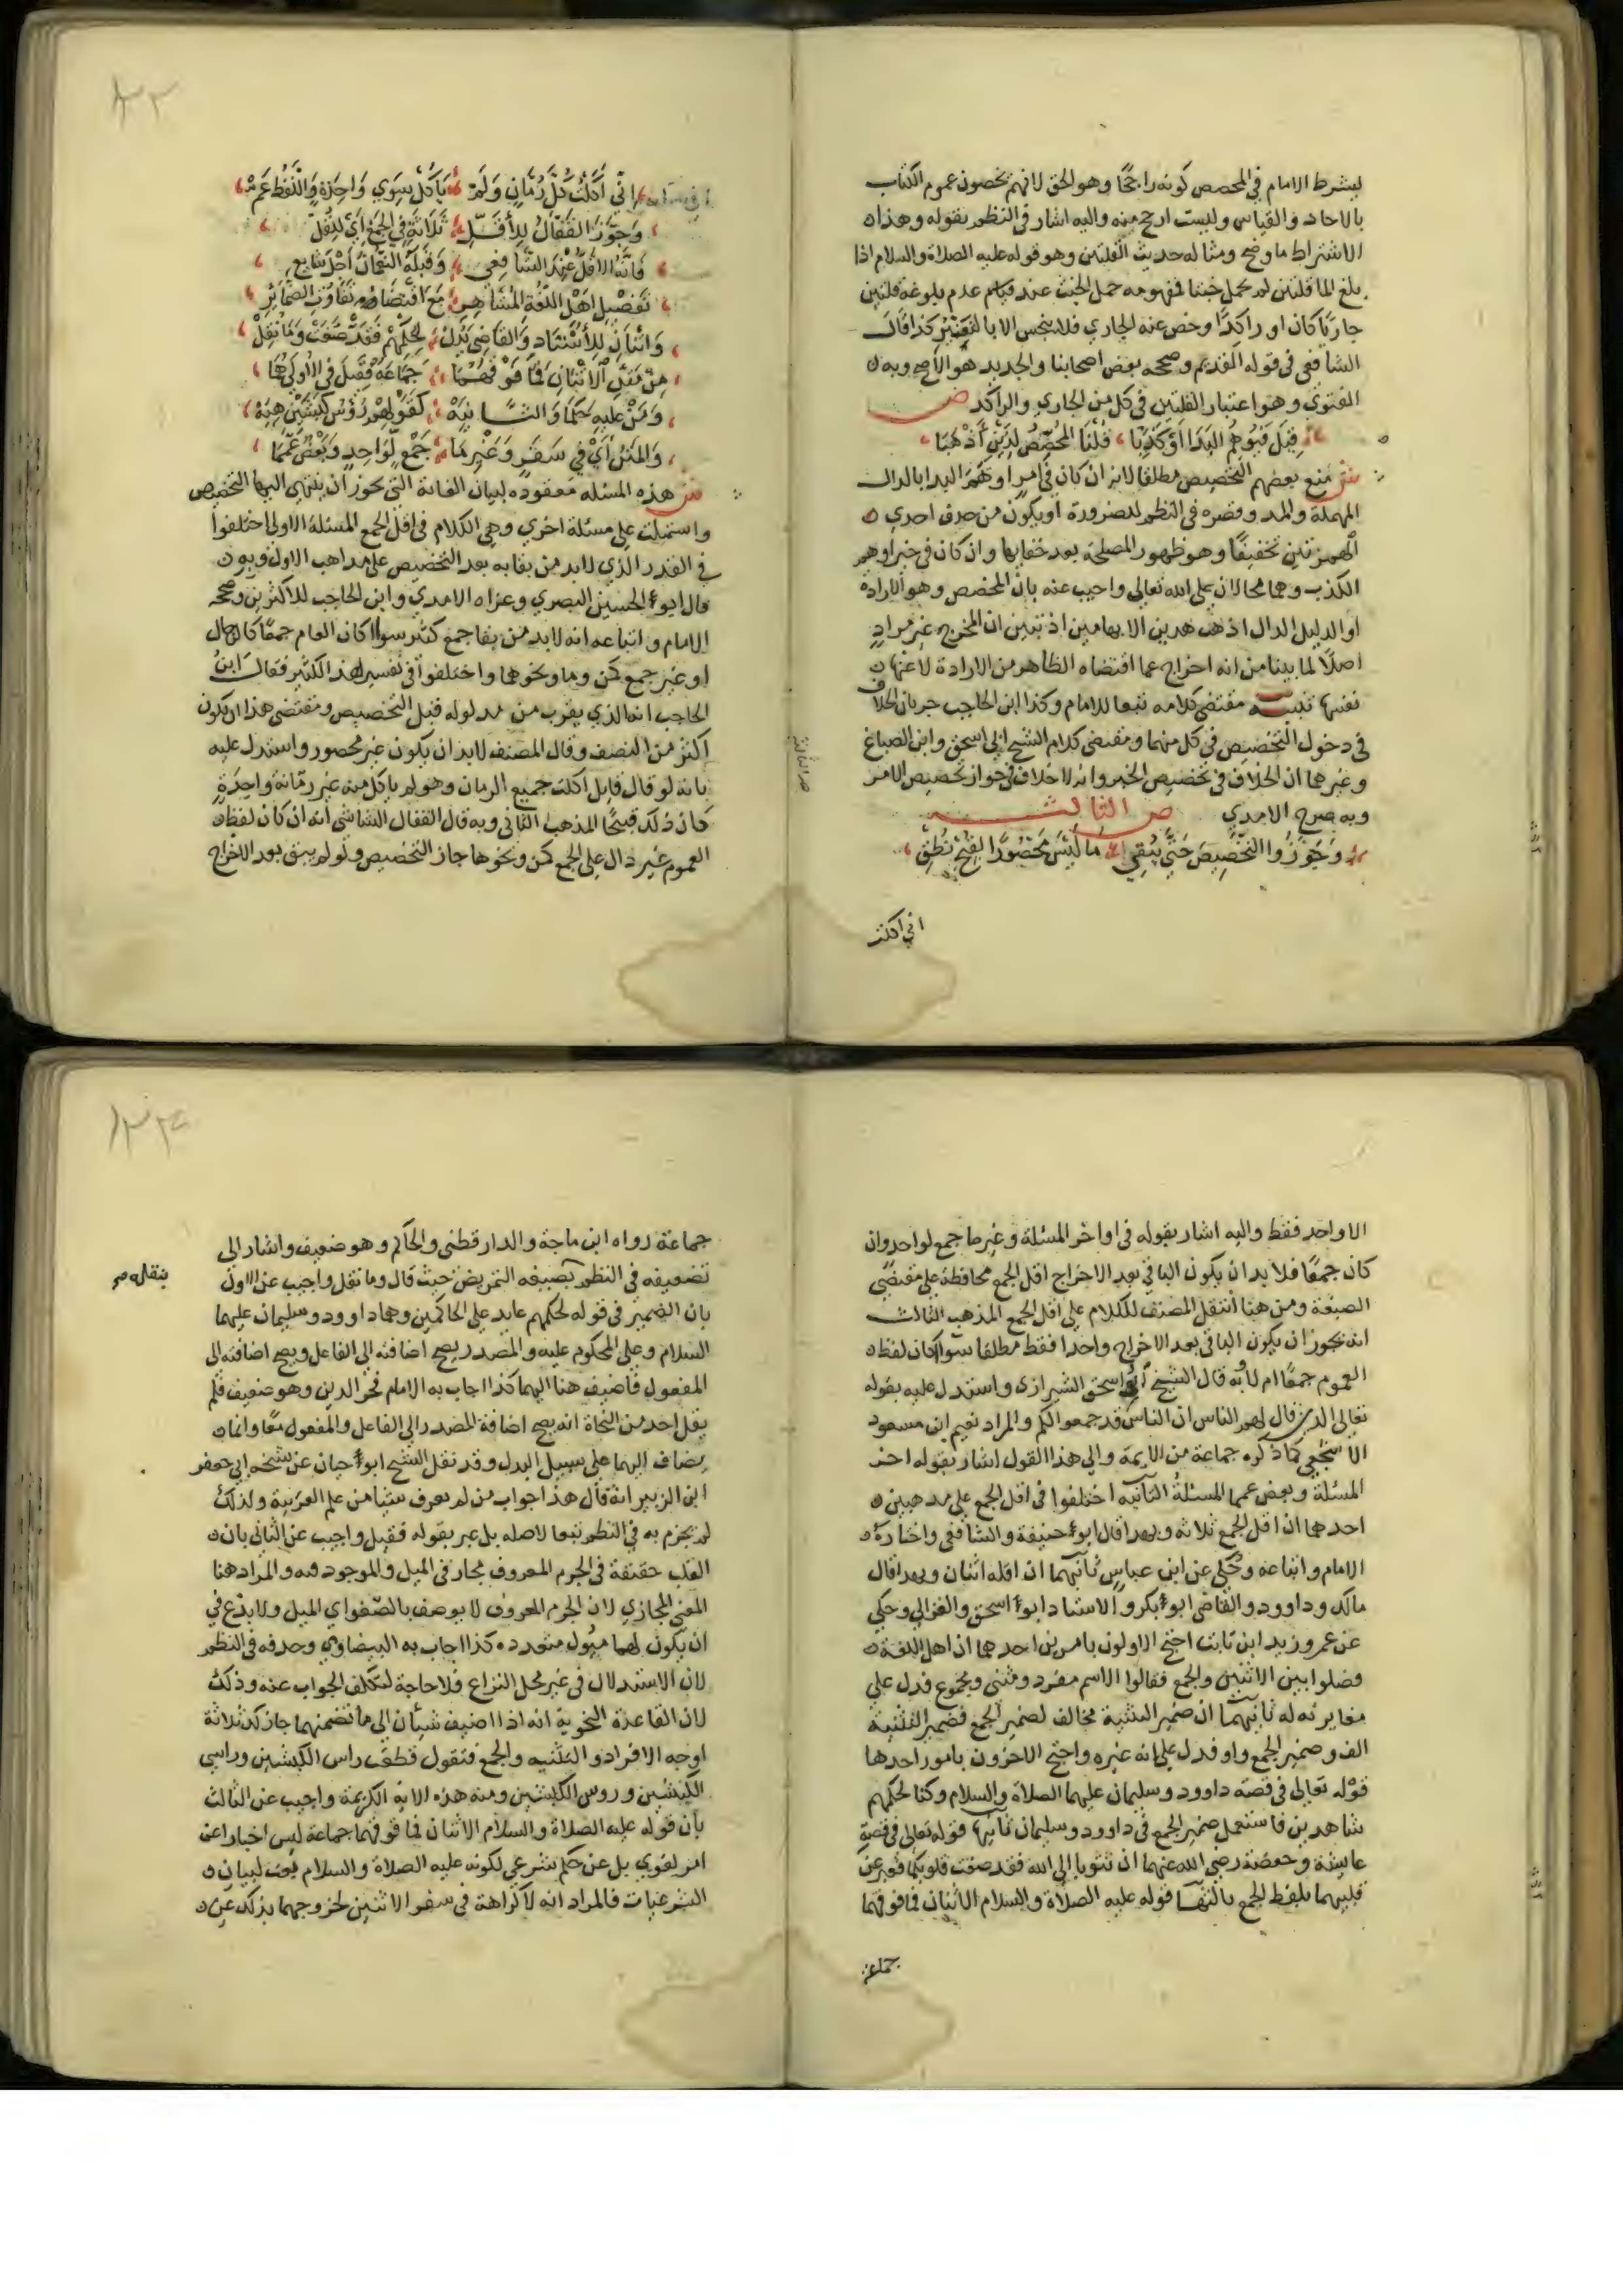 ليشرط الامام في المخصص كونه راجحًا وهو الحق لانهم يخصون عموم الكتاب
بالاحاد والقياس وليست ارجح منه واليه اشار في النظم بقوله وهذا
الاشتراط ما وضح ومثاله حديث القلتين وهو قوله عليه الصلاة والسلام اذا
بلغ الما قلتين لم يحمل خبثا فمفهومه حمل الخبث عند عدم بلوغه قلتين
جاريًا كان او راكدًا وخص عنه الجاري فلا ينجس الا بالتغيير كذا قال
الشافعي في قوله القديم وصححه بعض اصحابنا والجديد هو الاصح وبه
الفتوى وهو اعتبار القلتين في كل من الجاري والراكد ص
قِيلَ البَدَا اَوْ كَذِبَا قُلْنَا المُخَصِّصُ لِذَيْنِ أَذْهَبَا
ش منع بعضهم التخصيص مطلقا لانه ان كان في امر اوهم البدا بالدال
المهملة والمد وقصره في النظم للضرورة او يكون من حذف احدى
الهمزتين تخفيفًا وهو ظهور المصلحة بعد خفايها وان كان في خبر اوهم
الكذب وهما محالان على الله تعالى واجيب عنه بان المخصص وهو الارادة
او الدليل الدال اذهب هذين الايهامين اذ تبين ان المخرج غير مراد
اصلًا لما بينا من انه اخراج عما اقتضاه الظاهر من الارادة لا عنها
نفسها تنبيه مقتضى كلامه تبعا للامام وكذا ابن الحاجب جريان الخلاف
في دخول التخصيص في كل منهما ومقتضى كلام الشيخ ابي اسحق وابن الصباغ
وغيرهما ان الخلاف في تخصيص الخبر وانه لا خلاف في جواز تخصيص الامر
وبه صرح الامدي ص الثالثة
وَجَوَّزُوا التَّخْصِيصَ حَتَّى يَبْقَى مَا لَيْسَ مَحْصُورًا لِقُبْحِ نُطْقِ
اني اكلت
اِنِّي أَكَلْتُ كُلَّ رُمَّانٍ وَلَمْ يَأْكُلْ سِوَى وَاحِدَةٍ وَاللَّفْظُ عَمْ
وَجَوَّزَ القَفَّالُ لِلأَقَلِّ ثَلَاثَةٍ فِي الجَمْعِ أَيْ لِلقُلِّ
فَاِنَّهُ الاَقَلُّ عِنْدَ الشَّافِعِي وَقَبْلَهُ النُّعْمَانُ
تَفْضِيلِ اَهْلِ اللُّغَةِ المَشَاهِرِ مَعَ تَفَاوُتِ الضَّمَائِرِ
وَاثْنَانِ لِلأُسْتَاذِ وَالقَاضِي لِحُكْمِهِمْ فَقَدْ صَغَتْ وَمَا نُقِلْ
الاثْنَانِ فَمَا فَوْقَهُمَا جَمَاعَةٌ فَقِيلَ فِي الاُولَى
وَمَنْ عَلَيْهِ حَكَمَا وَالثَّانِيَهْ كَقَوْلِهِمْ رُؤُسُ كَبْشَيْنِ
أَيْ فِي سَفَرٍ وَغَيْرِ مَا جَمْعٍ لِوَاحِدٍ وَبَعْضٌ عَمَّمَا
ش هذه المسئله معقوده لبيان الغاية التي يجوز ان ينتهي اليها التخصيص
واشتملت على مسئلة اخرى وهي الكلام في اقل الجمع المسئلة الاولى اختلفوا
في القدر الذي لابد من بقايه بعد التخصيص على مذاهب الاول وبه
قال ابو الحسين البصري وعزاه الامدي وابن الحاجب للاكثرين وصححه
الامام واتباعه انه لابد من بقا جمع كثير سوا كان العام جمعًا كالرجال
او غير جمع كمن وما ونحوهما واختلفوا في تفسير هذا الكثير فقال ابن
الحاجب انه الذي يقرب من مدلوله قبل التخصيص ومقتضى هذا ان يكون
اكثر من النصف وقال المصنف لابد ان يكون غير محصور واستدل عليه
بانه لو قال قايل اكلت جميع الرمان وهو لم ياكل منه غير رمّانة واحدة
كان ذلك قبيحًا المذهب الثاني وبه قال القفال الشاشي انه ان كان لفظ
العموم غير دال على الجمع كمن ونحوها جاز التخصيص ولو لم يبق بعد الاخراج
الا واحد فقط واليه اشار بقوله في اواخر المسئلة وغير ما جمع لواحد وان
كان جمعًا فلا بد ان يكون الباقي بعد الاخراج اقل الجمع محافظة على مقتضى
الصيغة ومن هنا انتقل المصنف للكلام على اقل الجمع المذهب الثالث
انه يجوز ان يكون الباقي بعد الاخراج واحدا فقط مطلقا سوا كان لفظ
العموم جمعًا ام لا وبه قال الشيخ ابو اسحق الشيرازي واستدل عليه بقوله
تعالى الذين قال لهم الناس ان الناس قد جمعوا لكم والمراد نعيم ابن مسعود
الاشجعي كما ذكره جماعة من الايمة والى هذا القول اشار بقوله اخر
المسئلة وبعض عمما المسئلة الثانيه اختلفوا في اقل الجمع على مذهبين
احدهما ان اقل الجمع ثلاثة وبهذا قال ابو حنيفة والشافعي واختاره
الامام واتباعه وحُكي عن ابن عباس ثانيهما ان اقله اثنان وبهذا قال
مالك وداوود والقاضي ابو بكر والاستاد ابو اسحق والغزالي وحكي
عن عمر وزيد ابن ثابت احتج الاولون بامرين احدهما ان اهل اللغة
فصلوا بين الاثنين والجمع فقالوا الاسم مفرد ومثنى ومجموع فدل على
مغايرته له ثانيهما ان ضمير التثنية مخالف لضمير الجمع فضمير التثنية
الف وضمير الجمع واو فدل على انه غيره واحتج الاخرون بامور احدها
قوله تعالى في قصة داوود وسليمان عليهما الصلاة والسلام وكنا لحكمهم
شاهدين فاستعمل ضمير الجمع في داوود وسليمان ثانيها قوله تعالى في قصة
عايشة وحفصة رضي الله عنهما ان تتوبا الى الله فقد صغت قلوبكما فعبر عن
قلبيهما بلفظ الجمع ثالثها قوله عليه الصلاة والسلام الاثنان فما فوقهما
جماعة
جماعة رواه ابن ماجة والدارقطني والحاكم وهو ضعيف واشار الى
تضعيفه في النظم بصيغه التمريض حيث قال وما نقل واجيب عن الاول
بان الضمير في قوله لحكمهم عايد على الحاكمين وهما داوود وسليمان عليهما
السلام وعلى المحكوم عليه والمصدر يصح اضافته الى الفاعل ويصح اضافته الى
المفعول فاضيف هنا اليهما كذا اجاب به الامام فخر الدين وهو ضعيف فلم
يقل احد من النحاة انه يصح اضافة المصدر الى الفاعل والمفعول معًا وانما
يضاف اليهما على سبيل البدل وقد نقل الشيخ ابو حيان عن شيخه ابي جعفر
ابن الزبير انه قال هذا جواب من لم يعرف شيًا من علم العربية ولذلك
لم يجزم به في النظم تبعا لاصله بل عبر بقوله فقيل واجيب عن الثاني بان
القلب حقيقة في الجرم المعروف مجاز في الميل والموجود فيه والمراد هنا
المعنى المجازي لان الجرم المعروف لا يوصف بالصّغو اي الميل ولا بدْع في
ان يكون لهما ميُول متعدده كذا اجاب به البيضاوي وحذفه في النظم
لان الاستدلال في غير محل النزاع فلا حاجة لتكلف الجواب عنه وذلك
لان القاعدة النحوية انه اذا اضيف شيئان الى ما تضمنهما جاز ثلاثة
اوجه الافراد والتثنيه والجمع فتقول قطعْت راس الكبشين وراسي
الكبشين وروس الكبشين ومنه هذه الاية الكريمة واجيب عن الثالث
بان قوله عليه الصلاة والسلام الاثنان فما فوقهما جماعة ليس اخبارا عن
امر لغوي بل عن حكم شرعي لكونه عليه الصلاة والسلام بُعث لبيان
الشرعيات فالمراد انه لا كراهة في سفر الاثنين لخروجهما بذلك عن